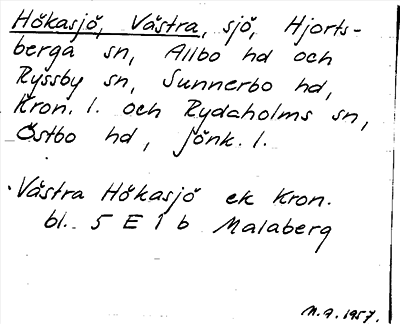 Hökasjö, Västra, sjö, Hjorts-
berga sn, Allbo hd och
Ryssby sn, Sunnerbo hd,
Kron. l. och Rydaholms sn,
Östbo hd, Jönk. l.
Västra Hökasjö ek Kron.
bl. 5 E 1 b Malaberg
N.A. 1957.